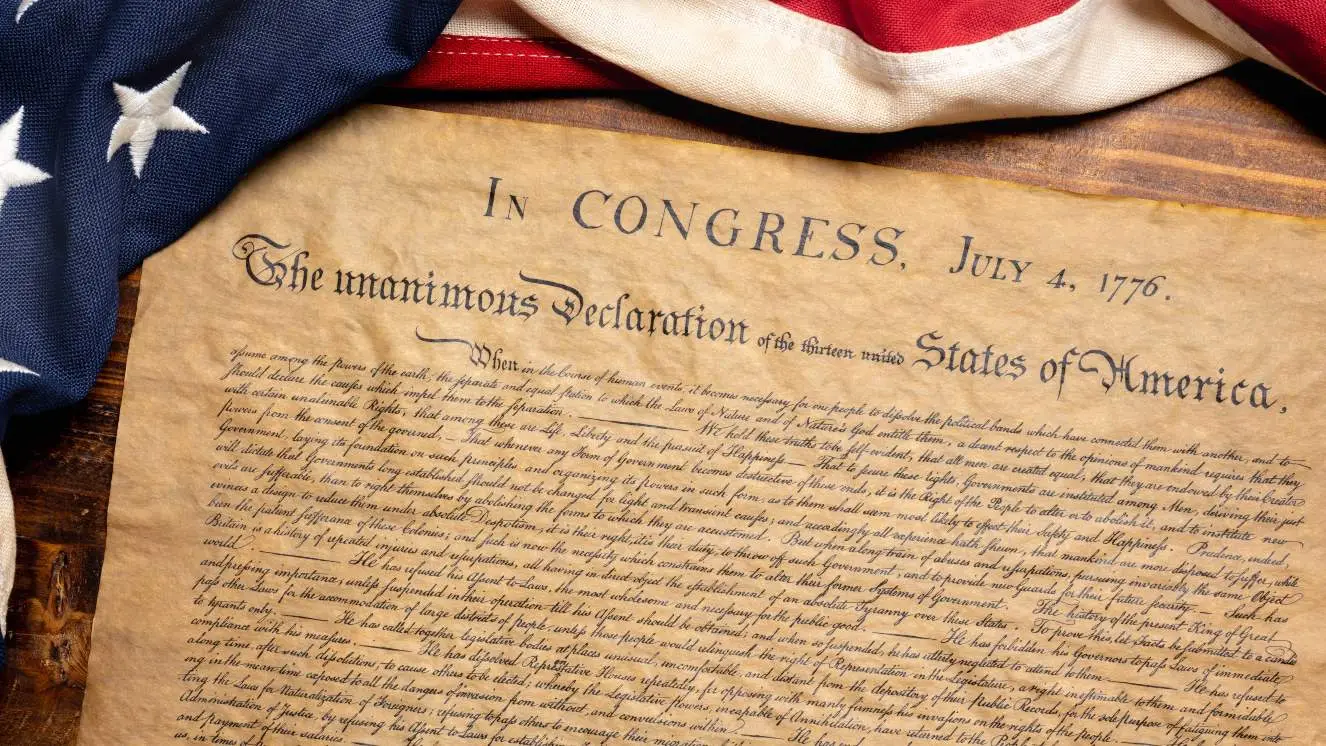 In CONGRESS, July 4, 1776.
The unanimous Declaration of the thirteen united States of America,
When in the Course of human events it becomes necessary for one people to dissolve the political bands which have connected them with another, and to
assume among the powers of the earth, the separate and equal station to which the Laws of Nature and of Nature's God entitle them, a decent respect to the opinions of mankind requires that they
should declare the causes which impel them to the separation. — We hold these truths to be self-evident, that all men are created equal, that they are endowed by their Creator
with certain unalienable Rights, that among these are Life, Liberty and the pursuit of Happiness.— That to secure these rights, Governments are instituted among Men, deriving their just
powers from the consent of the governed, — That whenever any Form of Government becomes destructive of these ends, it is the Right of the People to alter or to abolish it, and to institute new
Government, laying its foundation on such principles and organizing its powers in such form, as to them shall seem most likely to effect their Safety and Happiness. Prudence, indeed,
will dictate that Governments long established should not be changed for light and transient causes; and accordingly all experience hath shewn, that mankind are more disposed to suffer, while
evils are sufferable, than to right themselves by abolishing the forms to which they are accustomed. But when a long train of abuses and usurpations, pursuing invariably the same Object
evinces a design to reduce them under absolute Despotism, it is their right, it is their duty, to throw off such Government, and to provide new Guards for their future security.— Such has
been the patient sufferance of these Colonies; and such is now the necessity which constrains them to alter their former Systems of Government. The history of the present King of Great
Britain is a history of repeated injuries and usurpations, all having in direct object the establishment of an absolute Tyranny over these States. To prove this, let Facts be submitted to a candid
world. — He has refused his Assent to Laws, the most wholesome and necessary for the public good. — He has forbidden his Governors to pass Laws of immediate
and pressing importance, unless suspended in their operation till his Assent should be obtained; and when so suspended, he has utterly neglected to attend to them. — He has refused to
pass other Laws for the accommodation of large districts of people, unless those people would relinquish the right of Representation in the Legislature, a right inestimable to them and formidable
to tyrants only. — He has called together legislative bodies at places unusual, uncomfortable, and distant from the depository of their public Records, for the sole purpose of fatiguing them into
compliance with his measures. — He has dissolved Representative Houses repeatedly, for opposing with manly firmness his invasions on the rights of the people.
along time, after such dissolutions, to cause others to be elected; whereby the Legislative powers, incapable of Annihilation, have returned to the People
ing in the mean time exposed to all the dangers of invasion from without, and convulsions within. — He has
ting the Laws for Naturalization of Foreigners; refusing to pass others to encourage their migration
Administration of Justice, by refusing his Assent to Laws for
and payment of their salaries. — He
us, in times of